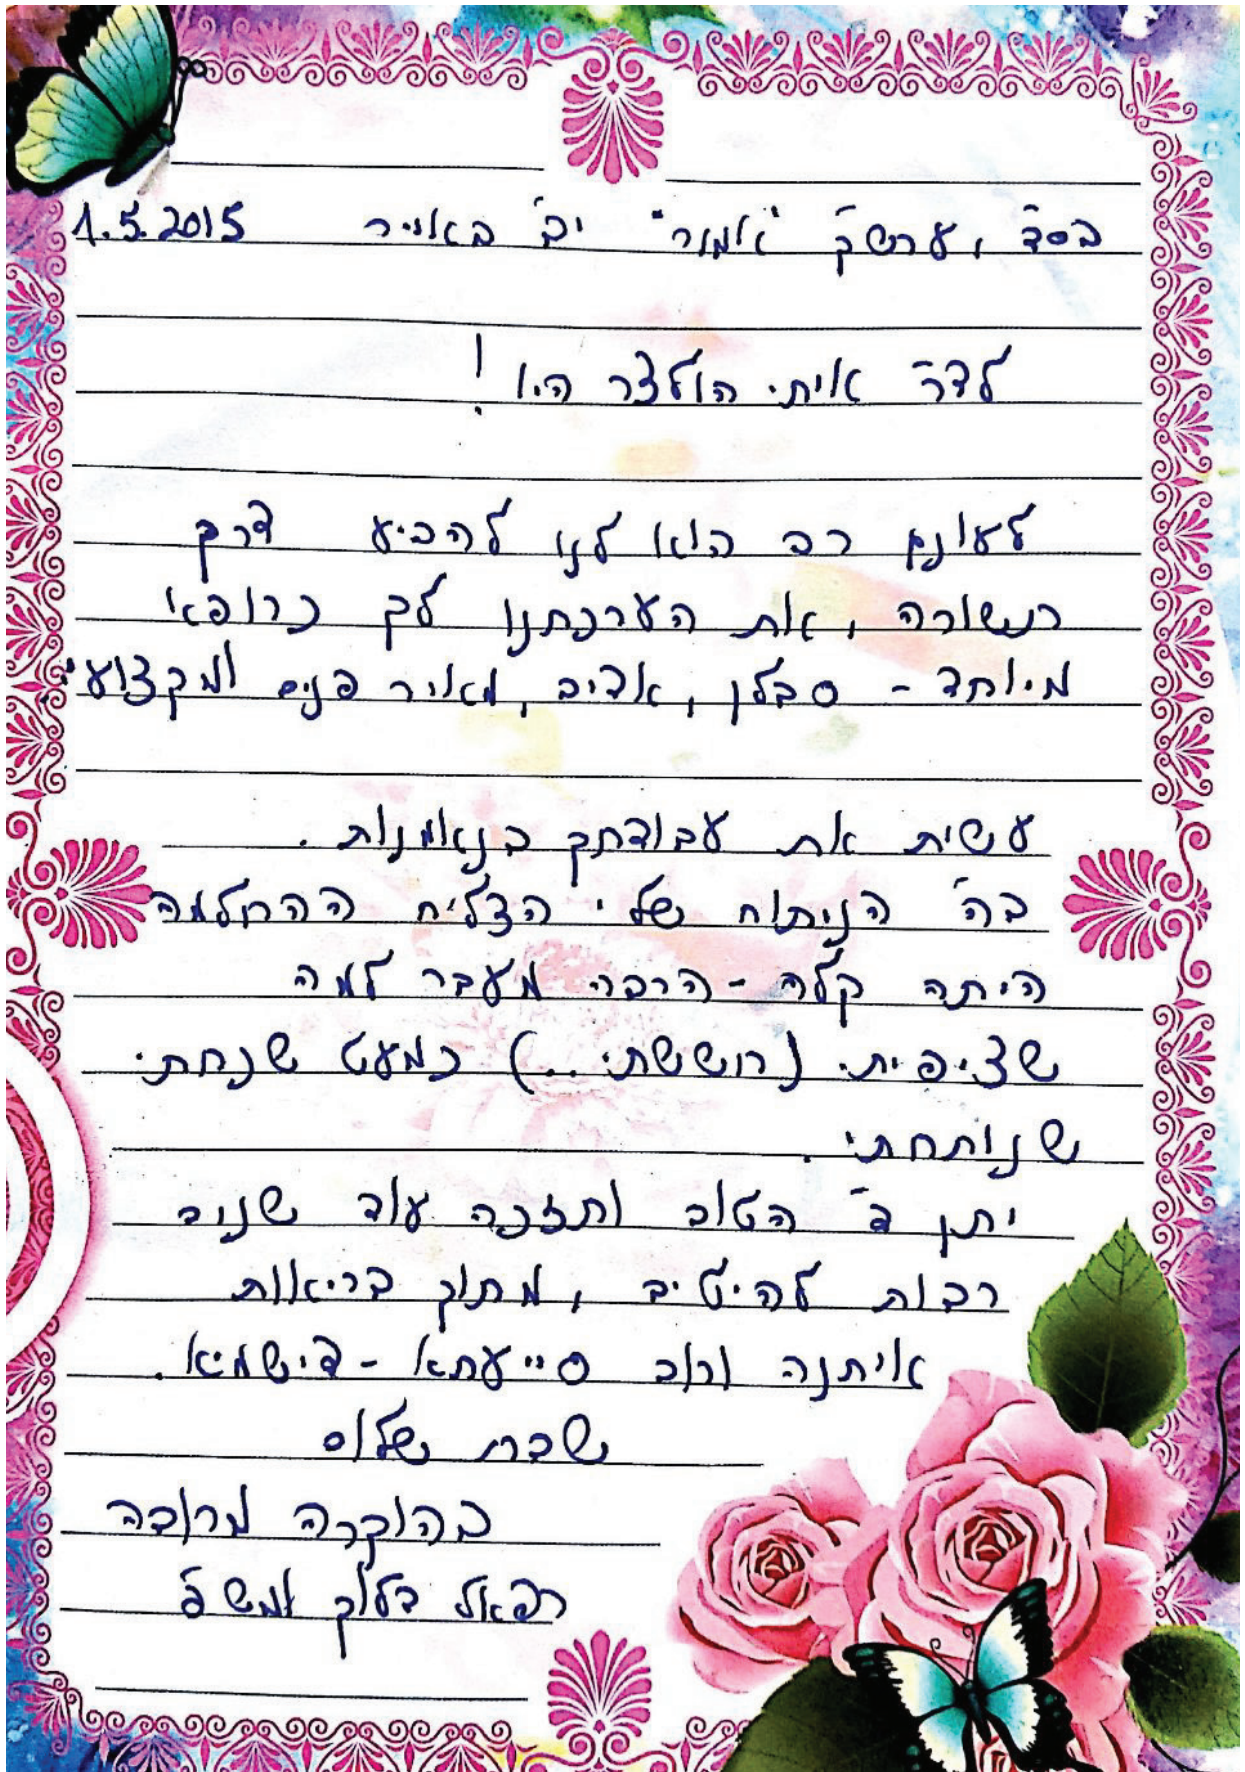 בס"ד, ערש"ק "אמור" יב' באייר 1.5.2015
לד"ר איתי הולצר הי"ו!
לעונג רב הוא לנו להביע דרך
תשורה, את הערכתנו לך כרופא
מיוחד - סבלן, אדיב, מאיר פנים ומקצועי.
עשית את עבודתך בנאמנות.
בה' הניתוח שלי הצליח ההחלמה
היתה קלה - הרבה מעבר למה
שציפיתי (חששתי...) כמעט שכחתי
שנותחתי.
יתן ד' הטוב ותזכה עוד שנים
רבות להיטיב, מתוך בריאות
איתנה ורוב סייעתא - דישמיא.
שבת שלום
בהוקרה מרובה
רפאל ומשפ'